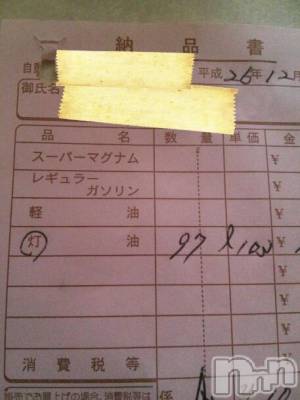 納品書
自動
平成 26年12月
御氏名
品名 数量 単価 金
スーパーマグナム ¥
レギュラー
ガソリン ¥
軽油 ¥
灯油 97 ℓ 100 ¥
消費税等 ¥
係